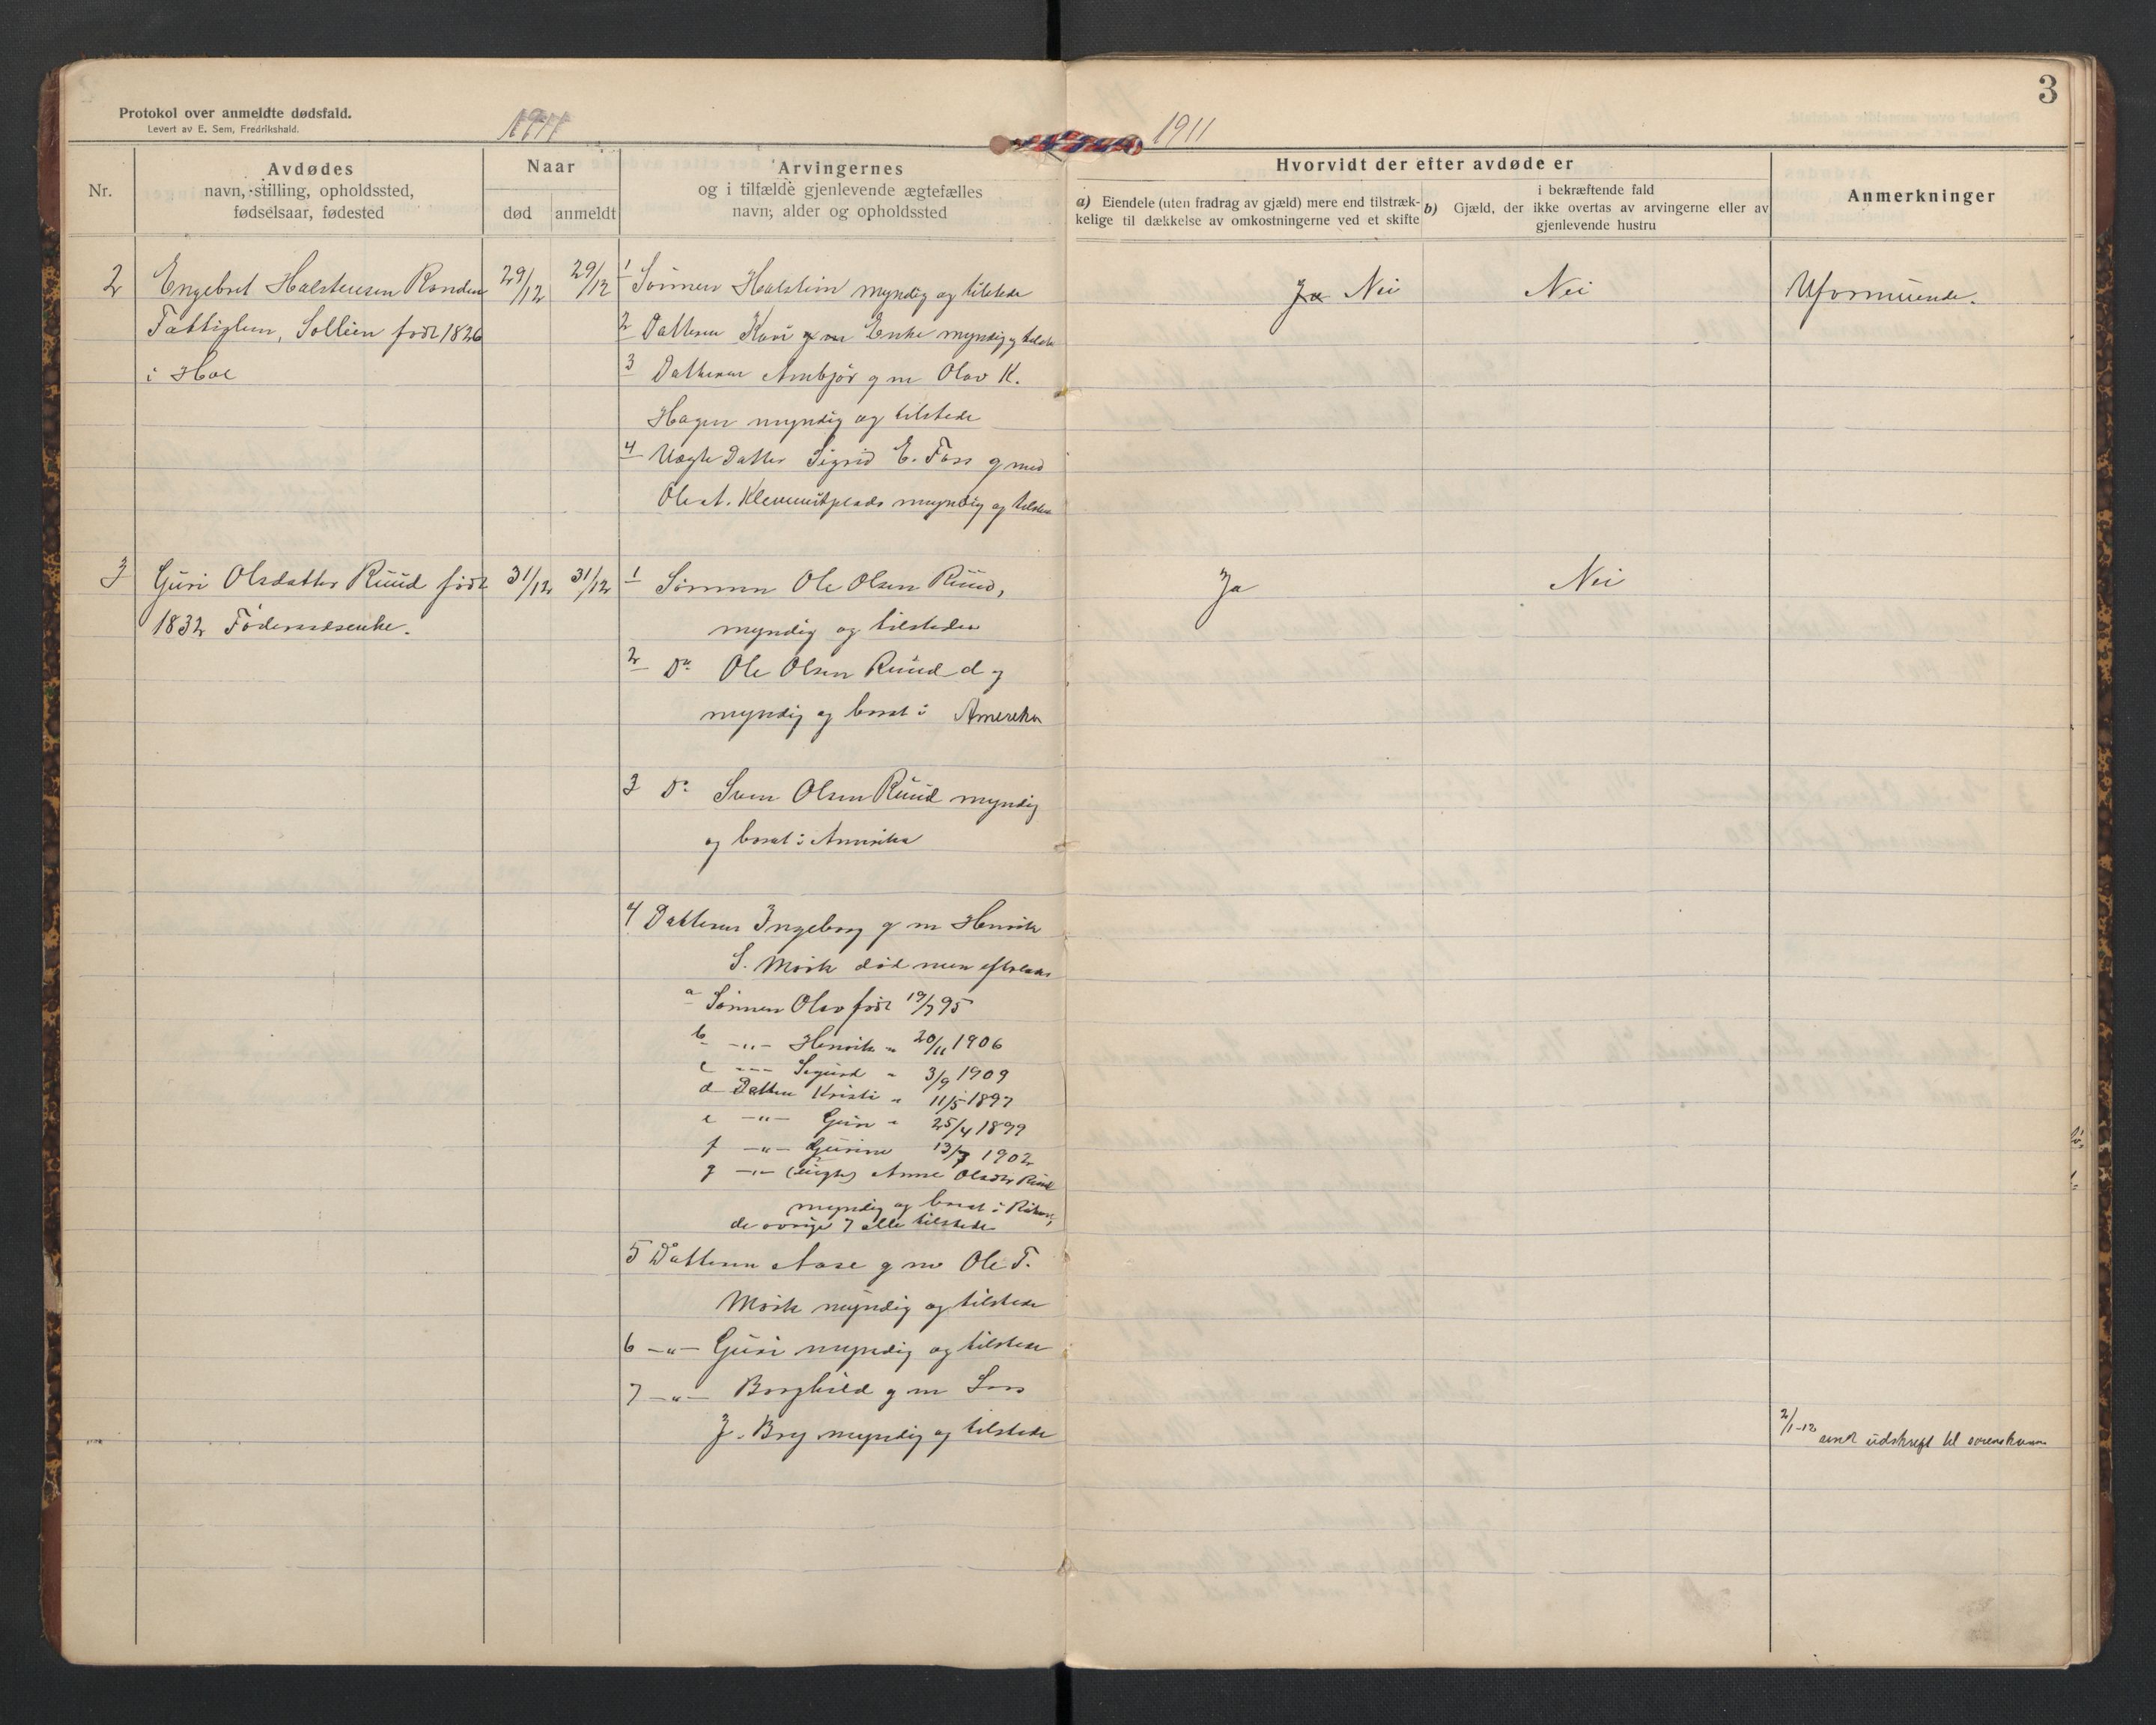 Protokol over anmeldte dødsfald.
Levert av E. Sem, Fredrikshald.
1911
Nr.
Avdødes
navn, stilling, opholdssted,
fødselsaar, fødested
Naar
død
anmeldt
Arvingernes
og i tilfælde gjenlevende ægtefælles
navn, alder og opholdssted
2
Engebret Halstensen Randen
Fattiglem, Sollien født 1826
i Hol
29/12
29/12
1 Sønnen Halstein myndig og tilstede
2 Datteren Kari g m Enke myndig og tilstede
3 Datteren Ambjør g m Olav K.
Hagen myndig og tilstede
4 Uægte Datter Sigrid E. Foss g med
Ole A. Klemmetsplads myndig og tilstede
3
Guri Olsdatter Ruud født
1832 Føderaadsenke.
31/12
31/12
1 Sønnen Ole Olsen Ruud,
myndig og tilstede
2 Do Ole Olsen Ruud d y
myndig og bosat i Amereka
3 Do Sven Olsen Ruud myndig
og bosat i Amerika
4 Datteren Ingeborg g m Henrik
S. Mørk død men efterlader
a Sønnen Olav født 19/7 95
b -"- Henrik " 20/11 1906
c -"- Sigurd " 3/9 1909
d Datter Kristi " 11/5 1897
e -"- Guri " 25/4 1899
f -"- Gurine 13/7 1902
g -"- (uægte) Anne Olsdtr Ruud
myndig og bosat i
de øvrige 7 alle tilstede
5 Datteren Aase g m Ole T.
Mørk myndig og tilstede
6 -"- Guri myndig og tilstede
7 -"- Borghild g m Lars
J. Bry myndig og tilstede
3
1911
Hvorvidt der efter avdøde er
a) Eiendele (uten fradrag av gjæld) mere end tilstræk-
kelige til dækkelse av omkostningerne ved et skifte
i bekræftende fald
b) Gjæld, der ikke overtas av arvingerne eller av
gjenlevende hustru
Anmerkninger
Ja Nei
Nei
Uformuende.
Ja
Nei
2/1-12
sendt udskrift til sorenskriveren